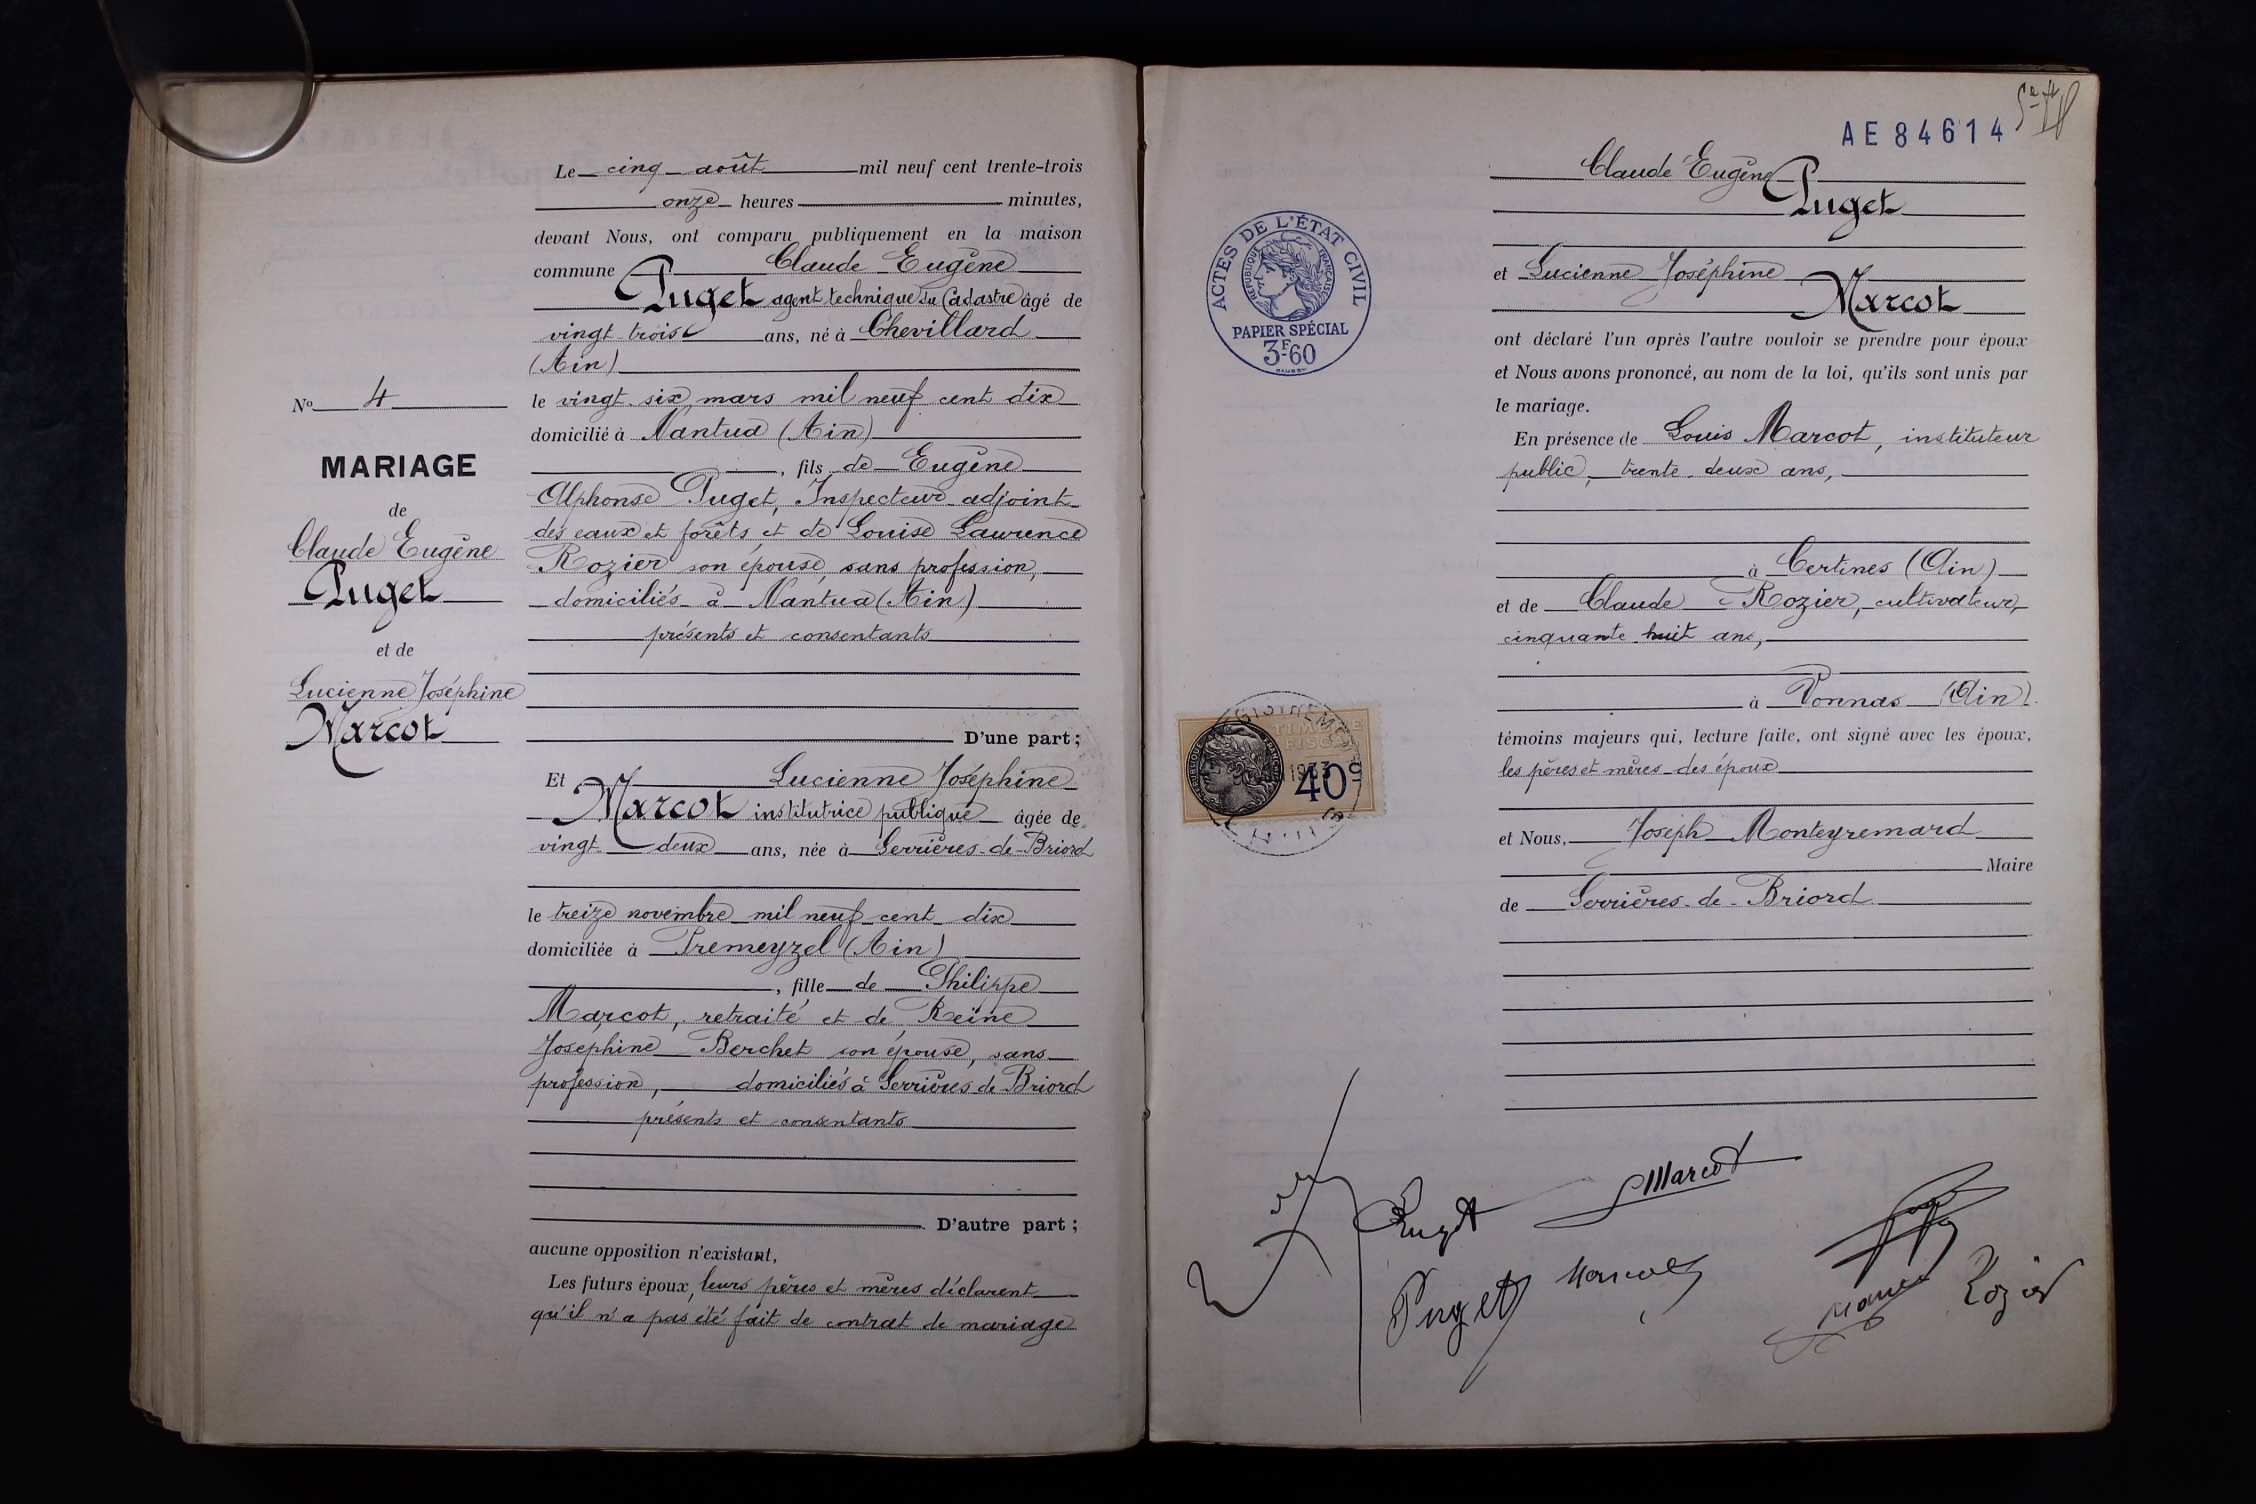 Le cinq août mil neuf cent trente-trois
onze heures minutes,
devant Nous, ont comparu publiquement en la maison
commune Claude Eugène
Puget agent technique du Cadastre âgé de
vingt trois ans, né à Chevillard
(Ain)
le vingt six mars mil neuf cent dix
domicilié à Nantua (Ain)
, fils de Eugène
Alphonse Puget, Inspecteur adjoint
des eaux et forêts et de Louise Laurence
Rozier son épouse, sans profession,
domiciliés à Nantua (Ain)
présents et consentants
D'une part ;
Et Lucienne Joséphine
Marcot institutrice publique âgée de
vingt deux ans, née à Serrières-de-Briord
le treize novembre mil neuf cent dix
domiciliée à Premeyzel (Ain)
, fille de Philippe
Marcot, retraité et de Reine
Joséphine Berchet son épouse, sans
profession, domiciliés à Serrières de Briord
présents et consentants
D'autre part ;
aucune opposition n'existant,
Les futurs époux, leurs pères et mères déclarent
qu'il n'a pas été fait de contrat de mariage
No 4
MARIAGE
de
Claude Eugène
Puget
et de
Lucienne Joséphine
Marcot
AE 84614
Claude Eugène
Puget
et Lucienne Joséphine
Marcot
ont déclaré l'un après l'autre vouloir se prendre pour époux
et Nous avons prononcé, au nom de la loi, qu'ils sont unis par
le mariage.
En présence de Louis Marcot, instituteur
public, trente deux ans,
à Certines (Ain)
et de Claude Rozier, cultivateur,
cinquante huit ans,
à Vonnas (Ain).
témoins majeurs qui, lecture faite, ont signé avec les époux,
les pères et mères des époux
et Nous, Joseph Monteyremard
Maire
de Serrières-de-Briord
ACTES DE L'ÉTAT CIVIL
RÉPUBLIQUE FRANÇAISE
PAPIER SPÉCIAL
3F60
TIMBRE
FISCAL
RÉPUBLIQUE FRANÇAISE
1933
40c
Puget
Marcot
Puget
Rozier